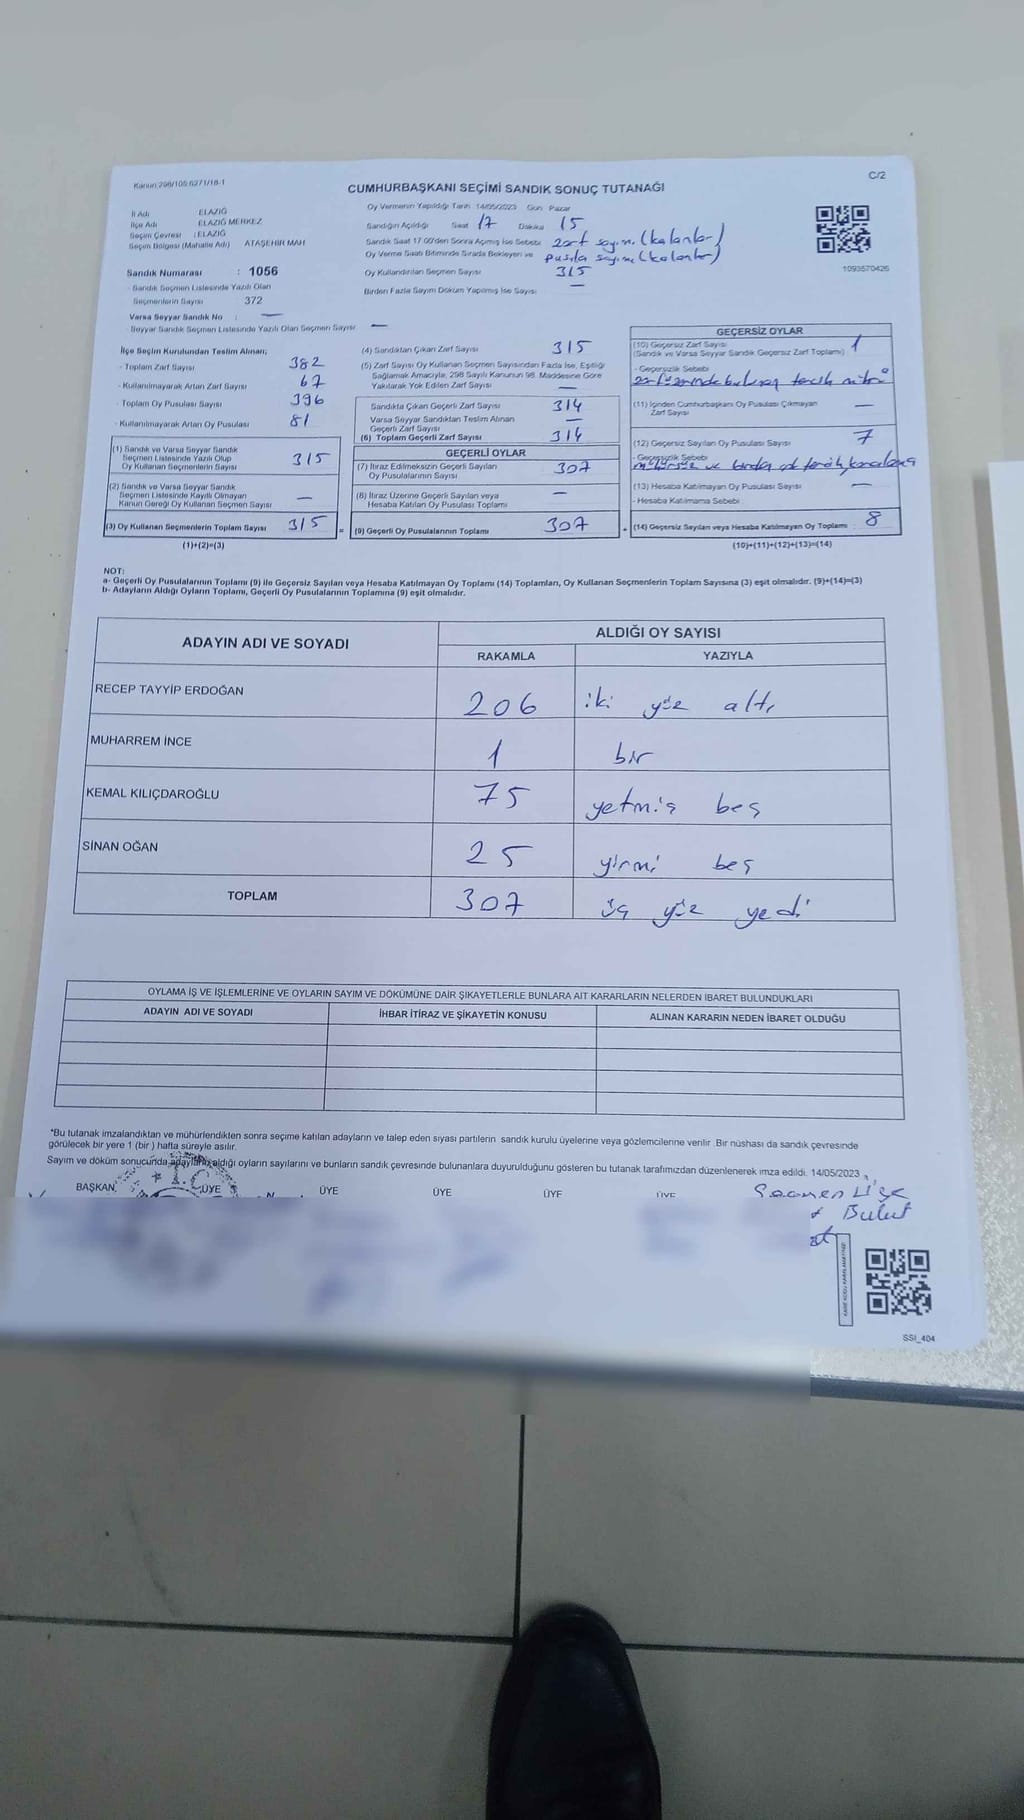 Kanun:298/105:6271/18-1
C/2
CUMHURBAŞKANI SEÇİMİ SANDIK SONUÇ TUTANAĞI
İl Adı ELAZIĞ
İlçe Adı ELAZIĞ MERKEZ
Seçim Çevresi : ELAZIĞ
Seçim Bölgesi (Mahalle Adı) ATAŞEHİR MAH
Sandık Numarası : 1056
- Sandık Seçmen Listesinde Yazılı Olan
Seçmenlerin Sayısı 372
Varsa Seyyar Sandık No : —
- Seyyar Sandık Seçmen Listesinde Yazılı Olan Seçmen Sayısı —
Oy Vermenin Yapıldığı Tarih 14/05/2023 Gün Pazar
Sandığın Açıldığı Saat 17 Dakika 15
Sandık Saat 17.00'den Sonra Açımış İse Sebebi zarf sayımı (kalanlar)
Oy Verme Saati Bitiminde Sırada Bekleyen ve pusula sayımı (kalanlar)
Oy Kullandırılan Seçmen Sayısı 315
Birden Fazla Sayım Döküm Yapılmış İse Sayısı —
1093570426
İlçe Seçim Kurulundan Teslim Alınan;
- Toplam Zarf Sayısı 382
- Kullanılmayarak Artan Zarf Sayısı 67
- Toplam Oy Pusulası Sayısı 396
- Kullanılmayarak Artan Oy Pusulası 81
(1) Sandık ve Varsa Seyyar Sandık
Seçmen Listesinde Yazılı Olup
Oy Kullanan Seçmenlerin Sayısı 315
(2) Sandık ve Varsa Seyyar Sandık
Seçmen Listesinde Kayıtlı Olmayan
Kanun Gereği Oy Kullanan Seçmen Sayısı —
(3) Oy Kullanan Seçmenlerin Toplam Sayısı 315
(1)+(2)=(3)
(4) Sandıktan Çıkan Zarf Sayısı 315
(5) Zarf Sayısı Oy Kullanan Seçmen Sayısından Fazla İse, Eşitliği
Sağlamak Amacıyla, 298 Sayılı Kanunun 98. Maddesine Göre
Yakılarak Yok Edilen Zarf Sayısı —
Sandıkta Çıkan Geçerli Zarf Sayısı 314
Varsa Seyyar Sandıktan Teslim Alınan
Geçerli Zarf Sayısı —
(6) Toplam Geçerli Zarf Sayısı 314
GEÇERLİ OYLAR
(7) İtiraz Edilmeksizin Geçerli Sayılan
Oy Pusulalarının Sayısı 307
(8) İtiraz Üzerine Geçerli Sayılan veya
Hesaba Katılan Oy Pusulası Toplamı —
= (9) Geçerli Oy Pusulalarının Toplamı 307
GEÇERSİZ OYLAR
(10) Geçersiz Zarf Sayısı 1
(Sandık ve Varsa Seyyar Sandık Geçersiz Zarf Toplamı)
- Geçersizlik Sebebi
zarf üzerinde bulunan tercih mührü
(11) İçinden Cumhurbaşkanı Oy Pusulası Çıkmayan
Zarf Sayısı —
(12) Geçersiz Sayılan Oy Pusulası Sayısı 7
- Geçersizlik Sebebi
mühürsüz ve birden çok tercih
(13) Hesaba Katılmayan Oy Pusulası Sayısı —
- Hesaba Katılmama Sebebi
+ (14) Geçersiz Sayılan veya Hesaba Katılmayan Oy Toplamı 8
(10)+(11)+(12)+(13)=(14)
NOT:
a- Geçerli Oy Pusulalarının Toplamı (9) ile Geçersiz Sayılan veya Hesaba Katılmayan Oy Toplamı (14) Toplamları, Oy Kullanan Seçmenlerin Toplam Sayısına (3) eşit olmalıdır. (9)+(14)=(3)
b- Adayların Aldığı Oyların Toplamı, Geçerli Oy Pusulalarının Toplamına (9) eşit olmalıdır.
ADAYIN ADI VE SOYADI ALDIĞI OY SAYISI
RAKAMLA YAZIYLA
RECEP TAYYİP ERDOĞAN 206 iki yüz altı
MUHARREM İNCE 1 bir
KEMAL KILIÇDAROĞLU 75 yetmiş beş
SİNAN OĞAN 25 yirmi beş
TOPLAM 307 üç yüz yedi
OYLAMA İŞ VE İŞLEMLERİNE VE OYLARIN SAYIM VE DÖKÜMÜNE DAİR ŞİKAYETLERLE BUNLARA AİT KARARLARIN NELERDEN İBARET BULUNDUKLARI
ADAYIN ADI VE SOYADI İHBAR İTİRAZ VE ŞİKAYETİN KONUSU ALINAN KARARIN NEDEN İBARET OLDUĞU
*Bu tutanak imzalandıktan ve mühürlendikten sonra seçime katılan adayların ve talep eden siyasi partilerin sandık kurulu üyelerine veya gözlemcilerine verilir. Bir nüshası da sandık çevresinde
görülecek bir yere 1 (bir) hafta süreyle asılır.
Sayım ve döküm sonucunda adayların aldığı oyların sayılarını ve bunların sandık çevresinde bulunanlara duyurulduğunu gösteren bu tutanak tarafımızdan düzenlenerek imza edildi. 14/05/2023
BAŞKAN ÜYE ÜYE ÜYE ÜYE ÜYE
T.C.
Bulut
SSI_404